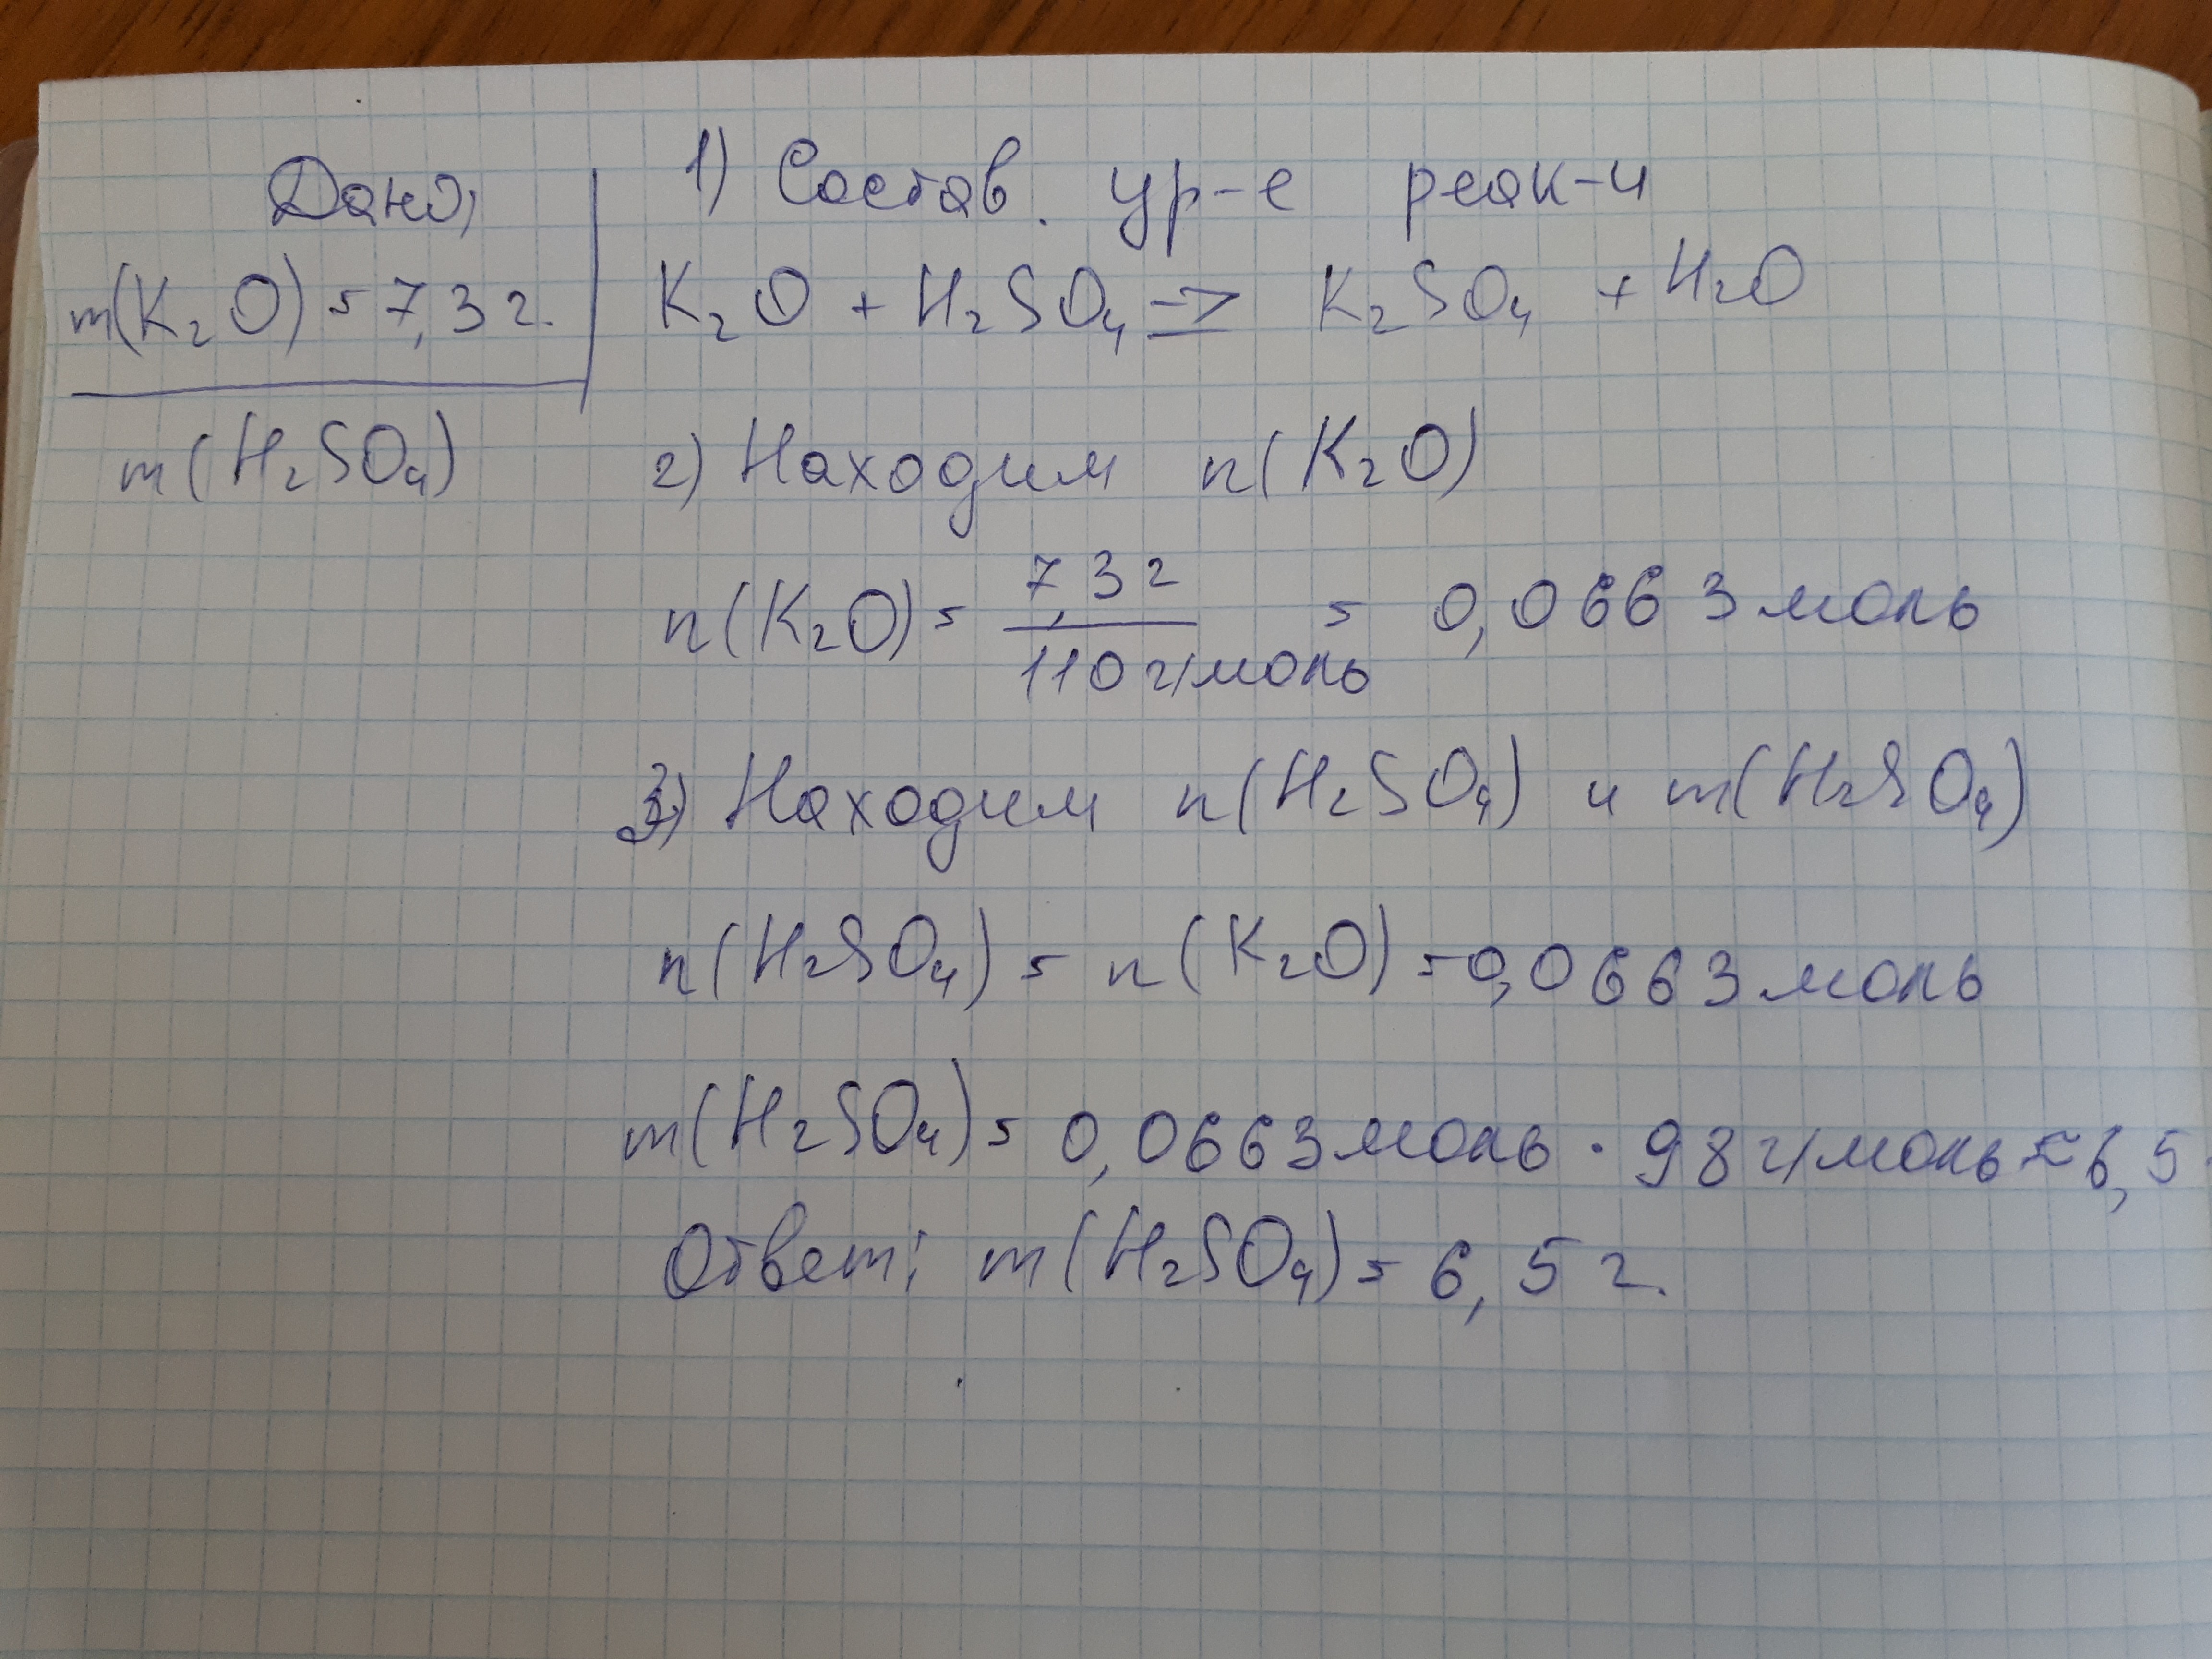 Дано:
m(K₂O) = 7,3 г.
m(H₂SO₄)
1) Состав. ур-е реак-и
K₂O + H₂SO₄ => K₂SO₄ + H₂O
2) Находим n(K₂O)
n(K₂O) = 7,3 г / 110 г/моль = 0,0663 моль
3) Находим n(H₂SO₄) и m(H₂SO₄)
n(H₂SO₄) = n(K₂O) = 0,0663 моль
m(H₂SO₄) = 0,0663 моль · 98 г/моль ≈ 6,5
Ответ: m(H₂SO₄) = 6,5 г.